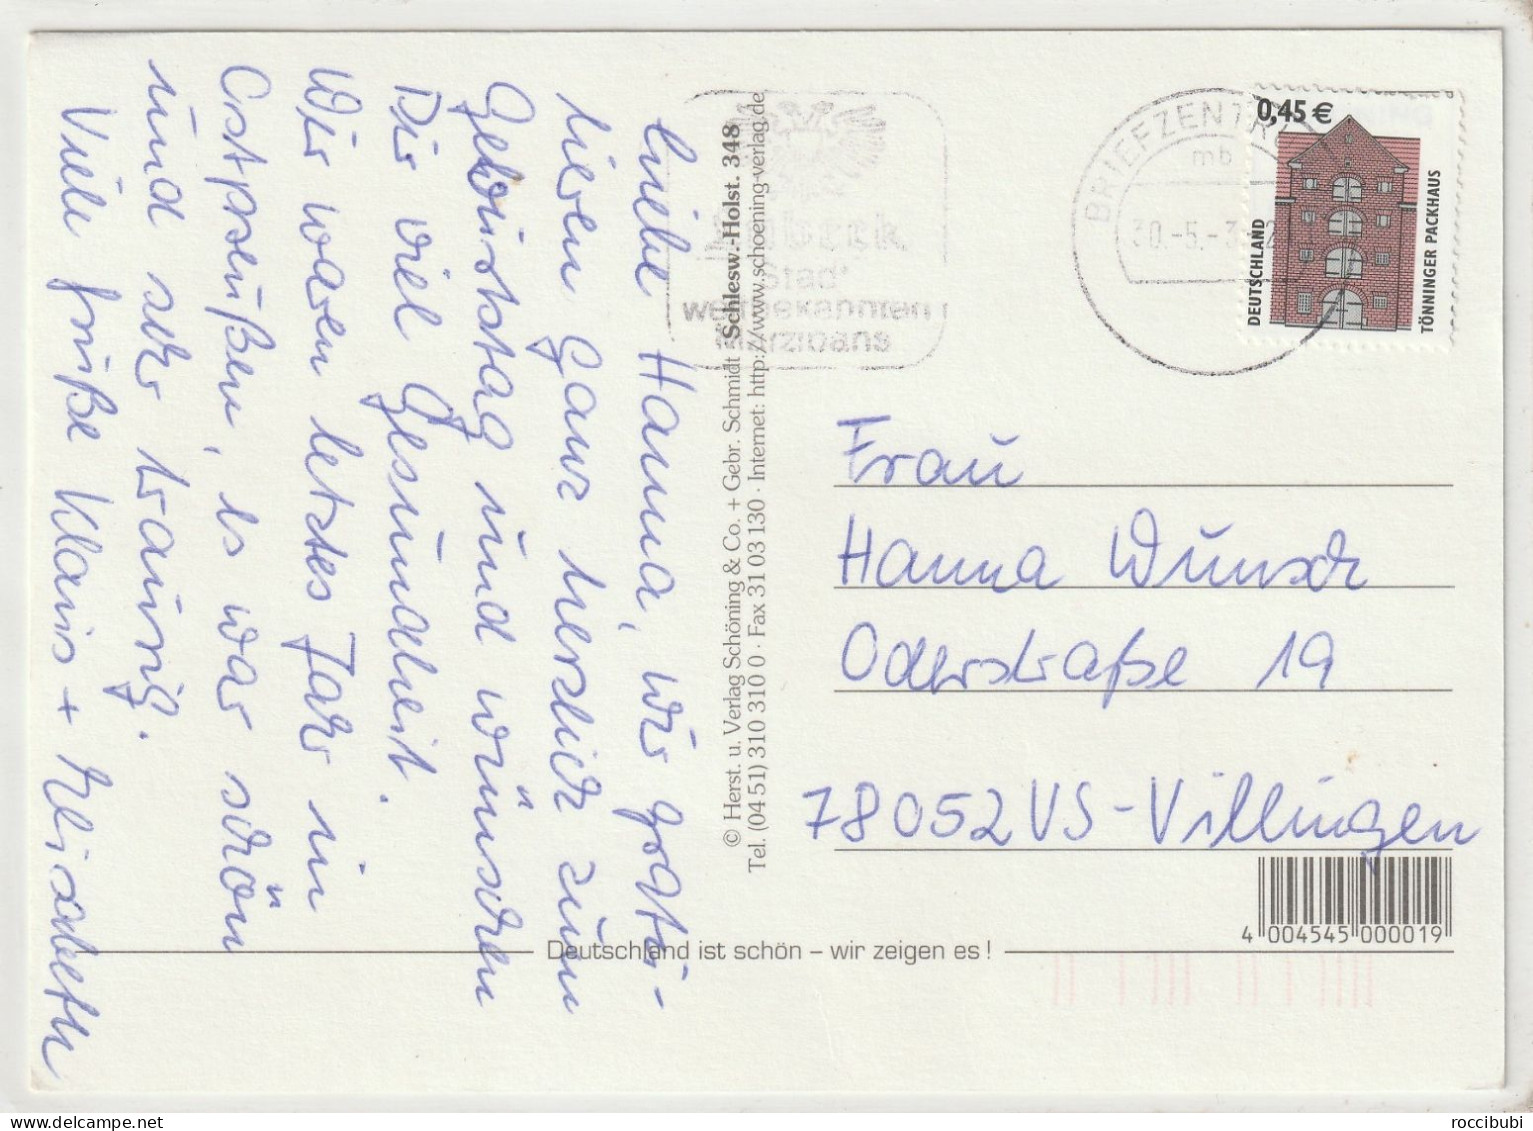 Liebe Hanna, wir gratu-
lieren Ganz herzlich zum
Geburtstag und wünschen
Dir viel Gesundheit.
Wir waren letztes Jahr in
Ostpreußen, es war schön
und sehr traurig.
Viele Grüße Klaus + Elisabeth
© Herst. u. Verlag Schöning & Co. + Gebr. Schmidt · Schlesw.-Holst. 348
Tel. (04 51) 310 310 0 · Fax 31 03 130 · Internet: http://www.schoening-verlag.de
Stadt
weltbekannten
Marzipans
BRIEFZENTRUM
mb
30.-5.-
0,45 €
DEUTSCHLAND
TÖNNINGER PACKHAUS
Frau
Hanna Wunsch
Oderstraße 19
78052 VS-Villingen
4 004545 000019
Deutschland ist schön – wir zeigen es !
roccibubi